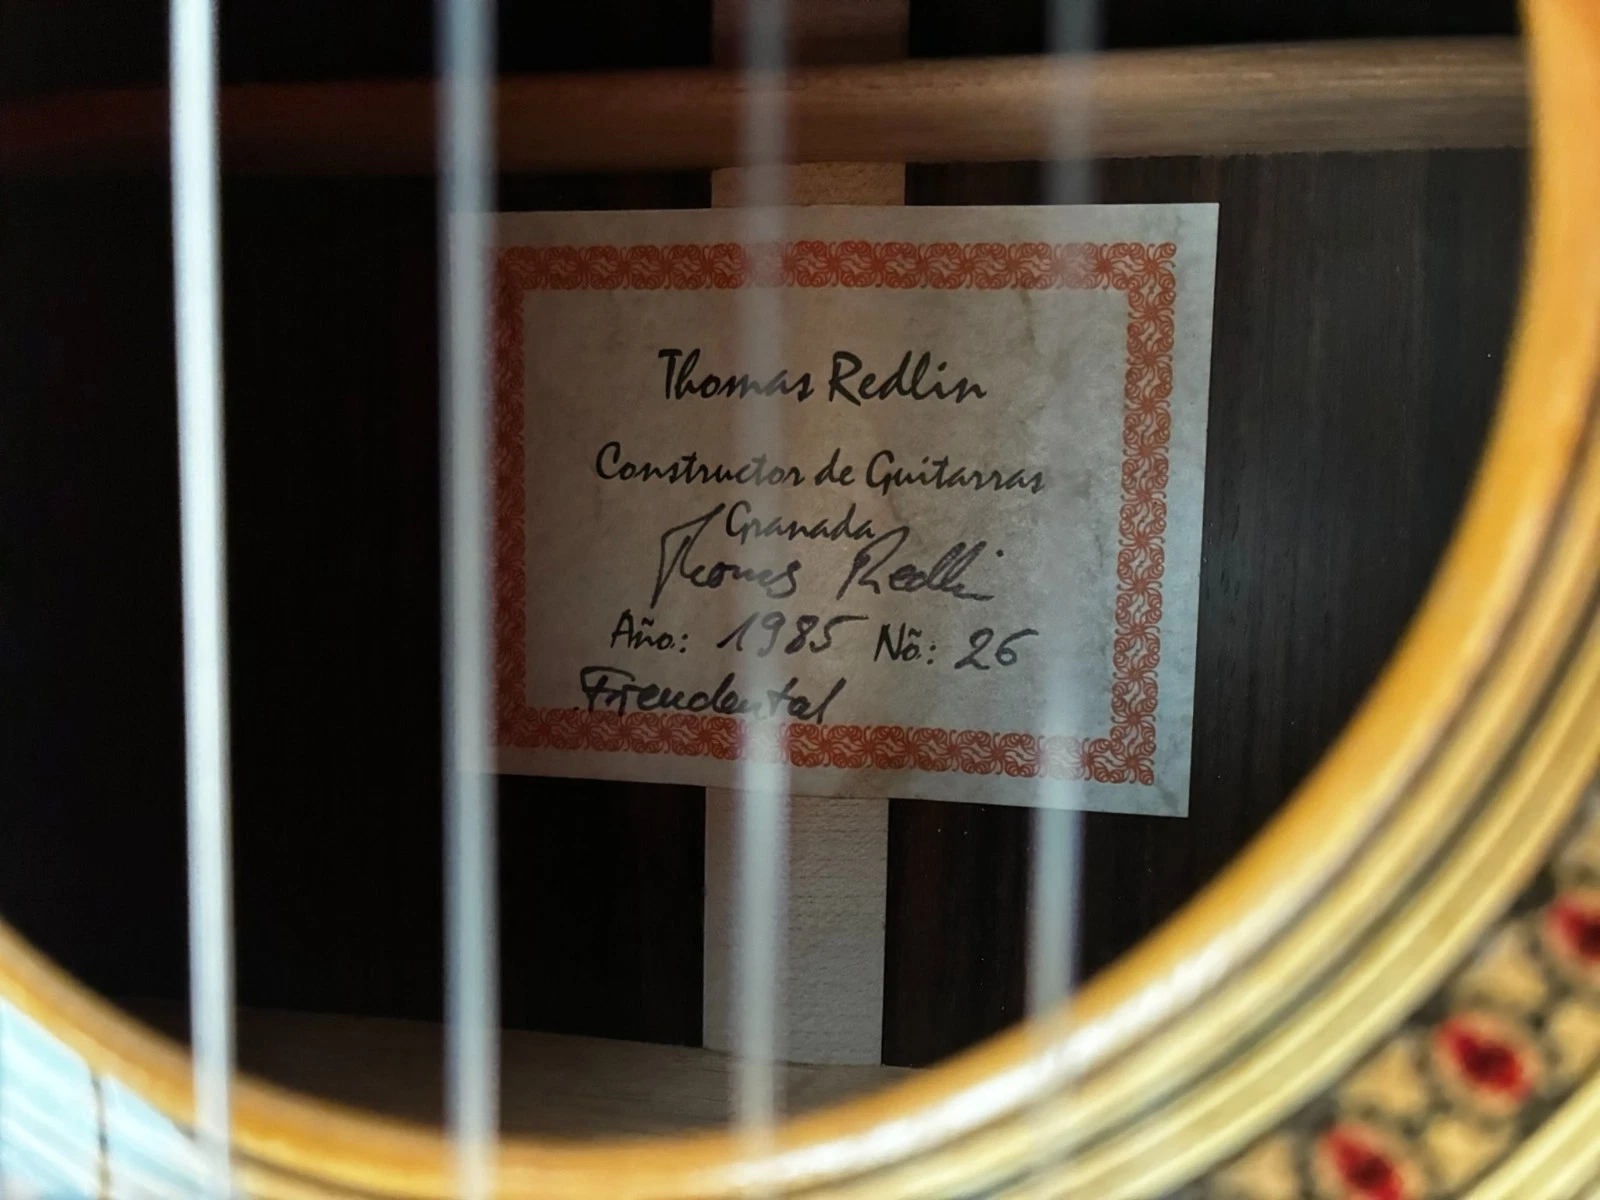 Thomas Redlin
Constructor de Guitarras
Granada
Thomas Redlin
Año.: 1985 Nõ.: 26
Freudental